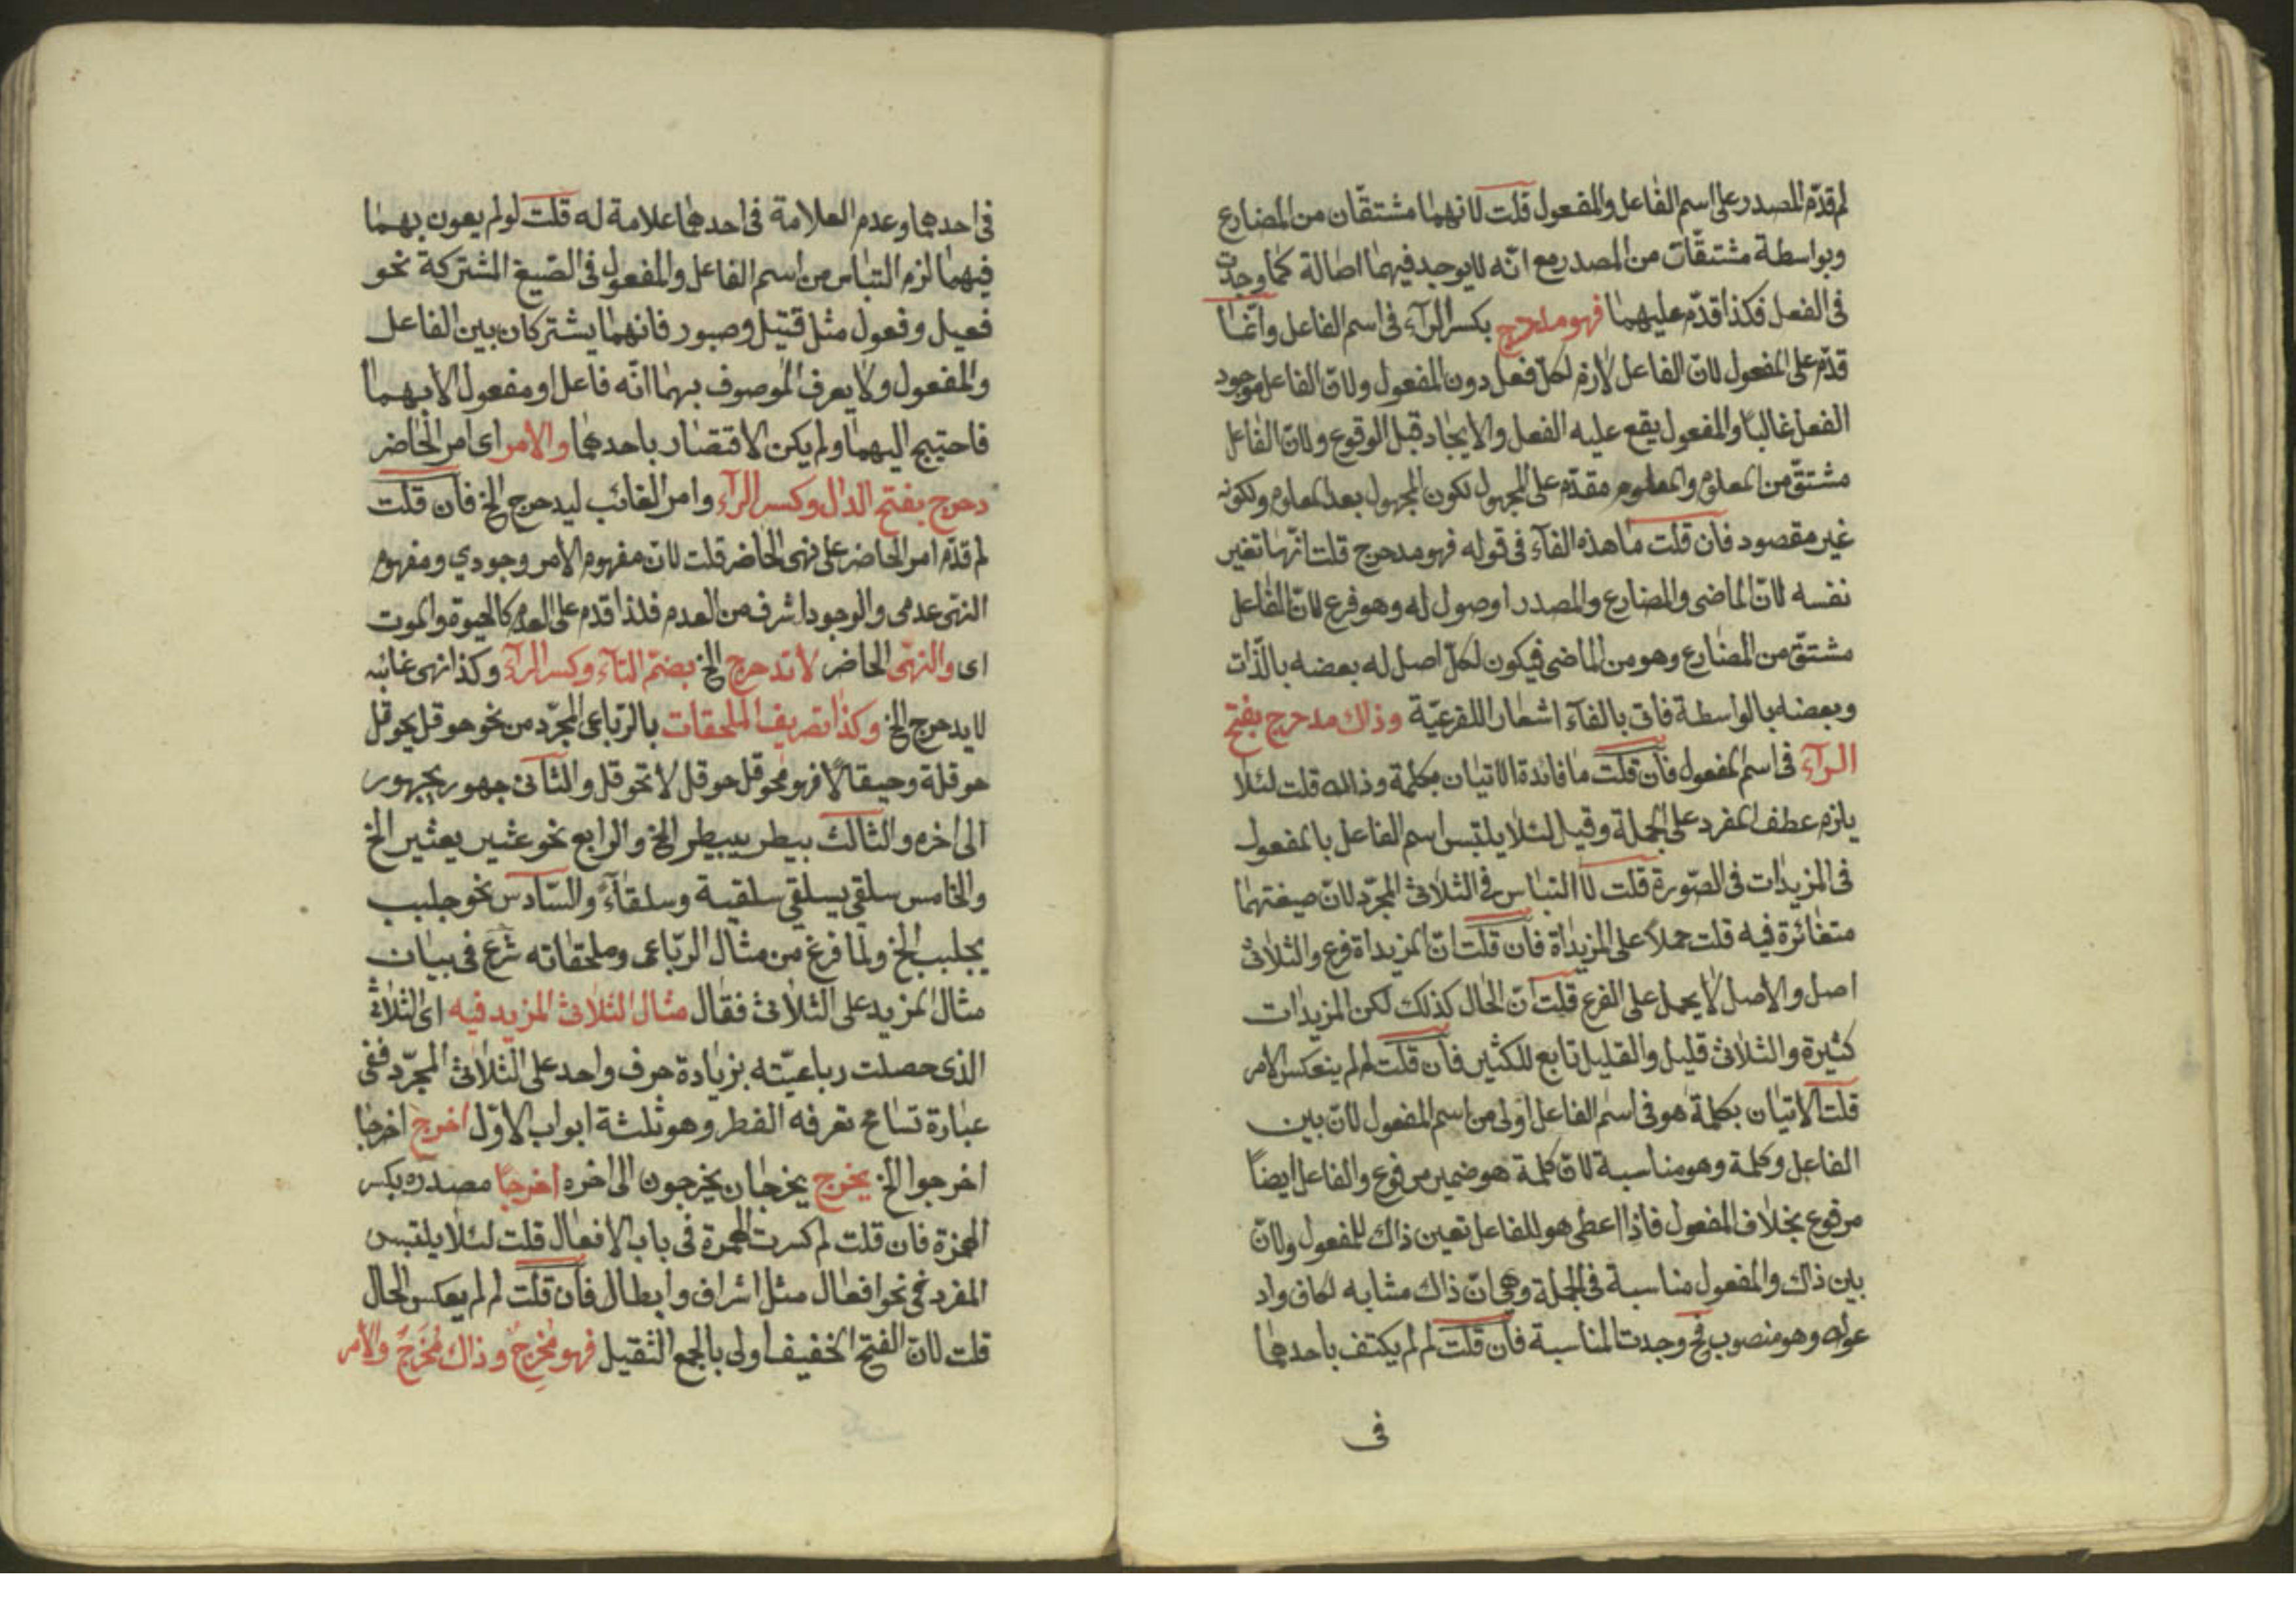 لم قدّم المصدر على اسم الفاعل والمفعول قلت لانهما مشتقّان من المضارع
وبواسطة مشتقّات من المصدر مع انّه لا يوجد فيهما اطالة كما وجدت
فى الفعل فكذا قدّم عليهما فهو مدحرج بكسر الرآء فى اسم الفاعل وانّما
قدّم على المفعول لانّ الفاعل لازم لكلّ فعل دون المفعول ولانّ الفاعل موجود
الفعل غالبا والمفعول يقع عليه الفعل والايجاد قبل الوقوع ولانّ الفاعل
مشتقّ من المعلوم والمعلوم مقدّم على المجهول لكون المجهول بعد المعلوم ولكونه
غير مقصود فان قلت ما هذه الفآء فى قوله فهو مدحرج قلت انّها تغير
نفسه لانّ الماضى والمضارع والمصدر اوصول له وهو فرع لانّ الفاعل
مشتقّ من المضارع وهو من الماضى فيكون لكلّ اصل له بعضه بالذّات
وبعضه بالواسطة فاتى بالفآء اشعارا للفرعيّة وذاك مدحرج بفتح
الرآء فى اسم المفعول فان قلت ما فائدة الاتيان بكلمة وذاك قلت لئلا
يلزم عطف المفرد على الجملة وقيل لئلا يلتبس اسم الفاعل بالمفعول
فى المزيدات فى الصّورة قلت لا التباس فى الثلاثى المجرّد لانّ صيغتهما
متغائرة فيه قلت حملا على المزيداة فان قلت انّ المزيداة فرع والثلاثى
اصل والاصل لا يحمل على الفرع قلت انّ الحال كذلك لكن المزيدات
كثيرة والثلاثى قليل والقليل تابع للكثير فان قلت لم لم ينعكس الامر
قلت الاتيان بكلمة هو فى اسم الفاعل اولى من اسم المفعول لانّ بين
الفاعل وكلمة وهو مناسبة لانّ كلمة هو ضمير مرفوع والفاعل ايضاً
مرفوع بخلاف المفعول فاذا اعطى هو للفاعل تعين ذاك للمفعول ولانّ
بين ذاك والمفعول مناسبة فى الجملة وهى انّ ذاك مشابه لكاف واد
عوك وهو منصوب فح وجدت المناسبة فان قلت لم لم يكتف باحدهما
فى
فى احدهما وعدم العلامة فى احدهما علامة له قلت لو لم يعون بهما
فيهما لزم التباس من اسم الفاعل والمفعول فى الصّيغ المشتركة نحو
فعيل وفعول مثل قتيل وصبور فانهما يشتركان بين الفاعل
والمفعول ولا يعرف الموصوف بهما انّه فاعل او مفعول الا بهما
فاحتيج اليهما ولم يكن الاقتصار باحدهما والامر اى امر الحاضر
دحرج بفتح الدال وكسر الرآء وامر الغائب ليدحرج الخ فان قلت
لم قدّم امر الحاضر على نهى الحاضر قلت لانّ مفهوم الامر وجودي ومفهوم
النهى عدمى والوجود اشرف من العدم فلذا قدم على العدم كالحيوة والموت
اى والنهى الحاضر لا تدحرج الخ بضمّ التآء وكسر الرآء وكذا نهى غائبه
لا يدحرج الخ وكذا تصريف الملحقات بالرّباعى المجرّد من نحو حوقل يحوقل
حوقلة وحيقالاً فهو محوقل حوقل لا تحوقل والثانى جهور يجهور
الى اخره والثالث بيطر يبيطر الخ والرابع نحو عثير يعثير الخ
والخامس سلقى يسلقى سلقية وسلقاءً والسّادس نحو جلبب
يجلبب الخ ولما فرغ من مثال الرّباعى وملحقاته شرع فى بيان
مثال المزيد على الثلاثى فقال مثال الثلاثى المزيد فيه اى الثلاثى
الذى حصلت رباعيّته بزيادة حرف واحد على الثلاثى المجرّد ففى
عبارة تسامح تعرفه الفطر وهو ثلثة ابواب الاوّل اخرج اخرجا
اخرجوا الخ يخرج يخرجان يخرجون الى اخره اخرجاً مصدره بكسر
الهمزة فان قلت لم كسرت الهمزة فى باب الافعال قلت لئلا يلتبس
المفرد فى نحو افعال مثل اشراف وابطال فان قلت لم لم يعكس الحال
قلت لانّ الفتح الخفيف اولى بالجمع الثقيل فهو مُخرِجٌ وذاك مُخرَجٌ والامر